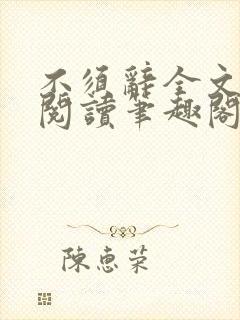 不須辭全文
閱讀筆趣閣
陳惠荣